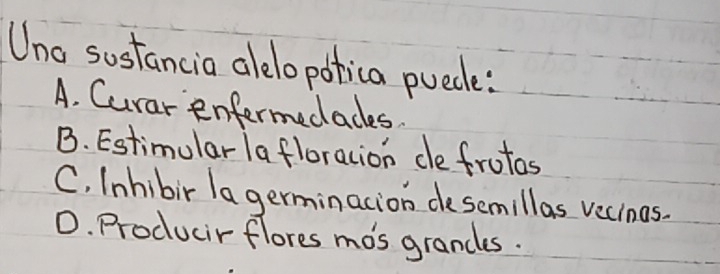 Una sustancia alelopática puede:
A. Curar enfermedades.
B. Estimular la floración de frutas
C. Inhibir la germinación de semillas vecinas.
D. Producir flores más grandes.